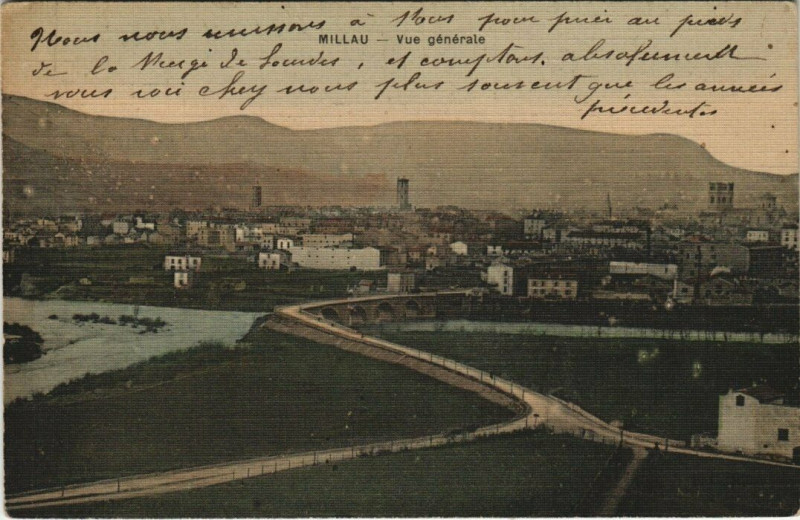 Nous nous unissons à Vous pour prier au pieds
MILLAU — Vue générale
de la Vierge de Lourdes, et comptons absolument
vous voir chez nous plus souvent que les années
précédentes